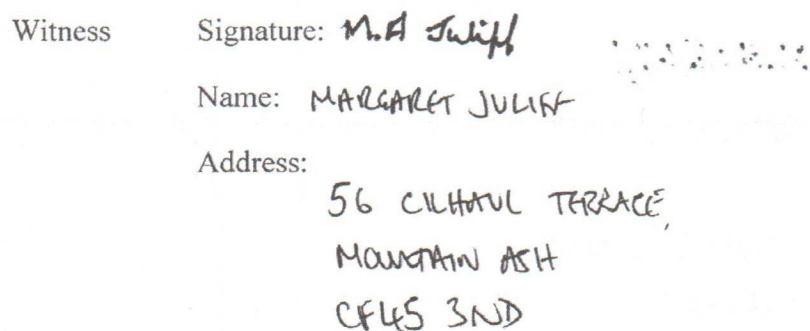 Witness Signature: M.A Juliff
Name: MARGARET JULIFF
Address:
56 CILHAUL TERRACE,
MOUNTAIN ASH
CF45 3ND